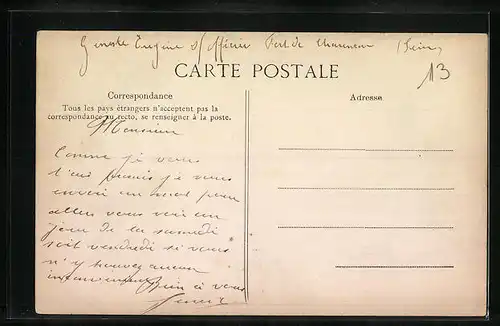 Eugène s/officier Fort de Charenton (Seine)
13
CARTE POSTALE
Correspondance
Tous les pays étrangers n'acceptent pas la
correspondance au recto, se renseigner à la poste.
Adresse
Monsieur
Comme je vous
l'ai promis je vous
envoie un mot pour
aller vous voir un
jour de la samedi
soit vendredi si vous
n'y trouvez aucun
inconvénient Bien à vous